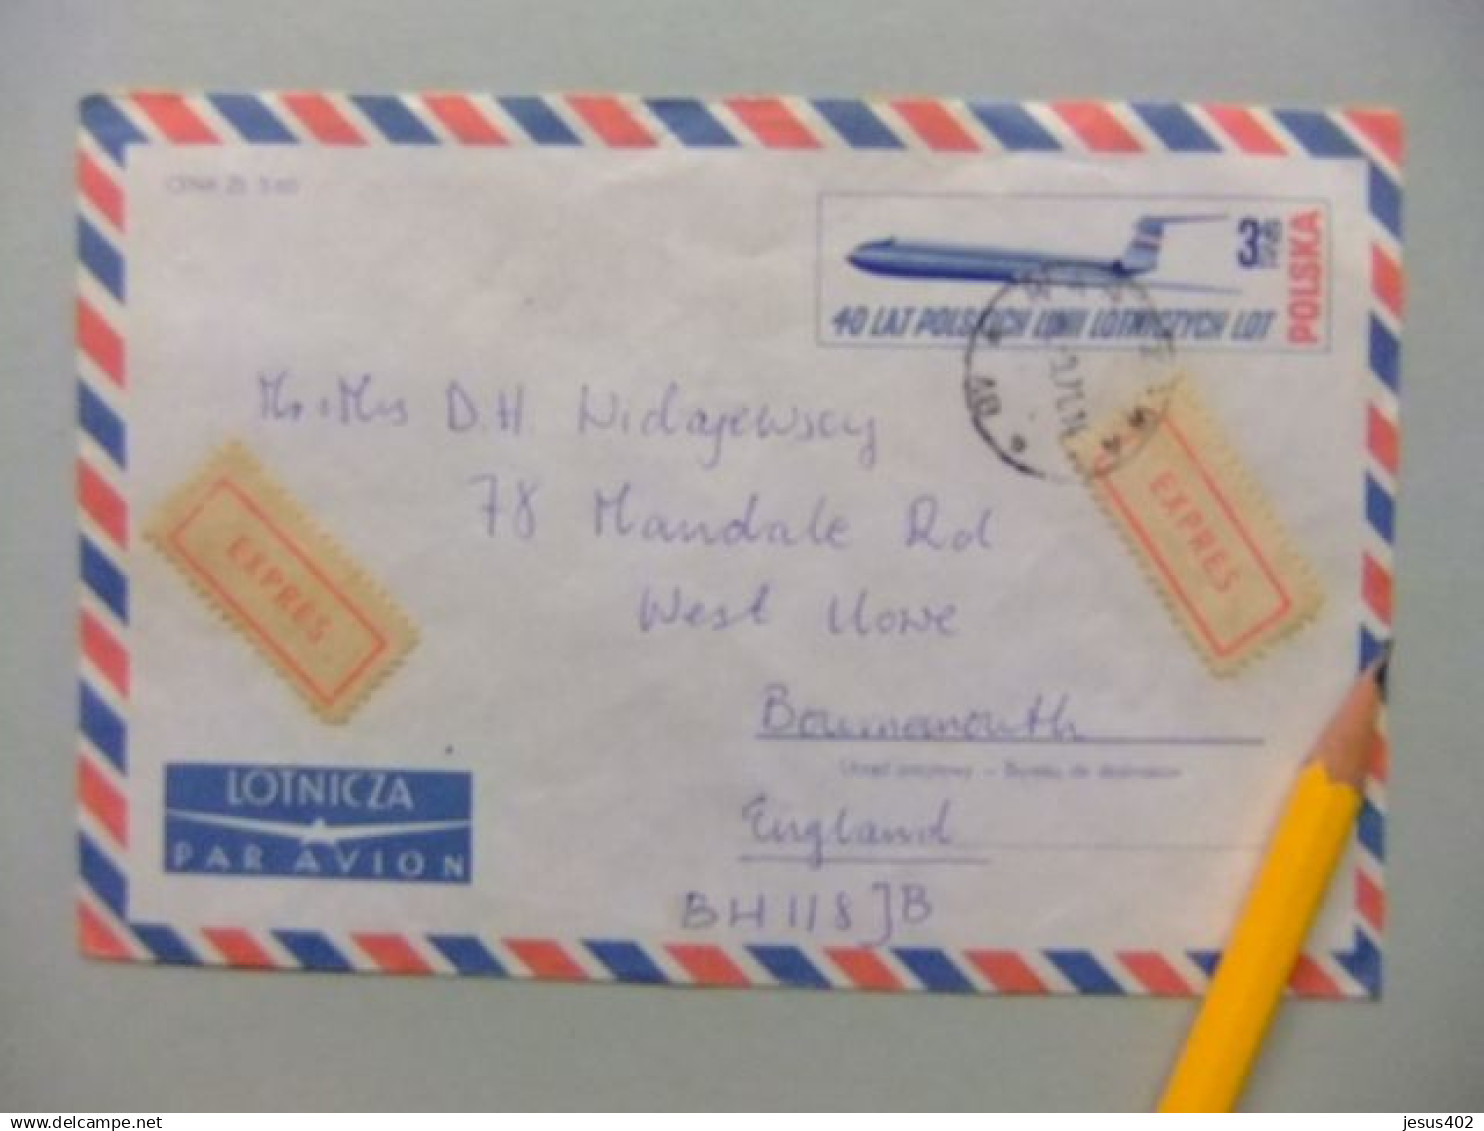 CENA ZŁ 3.60
3
POLSKA
40 LAT POLSKICH LINII LOTNICZYCH LOT
Mr. Mrs D.H. Widajewscy
78 Mandale Rd
West Howe
Bournemouth
Urząd pocztowy – Bureau de destination
England
BH11 8JB
EXPRES
EXPRES
LOTNICZA
PAR AVION
jesus402